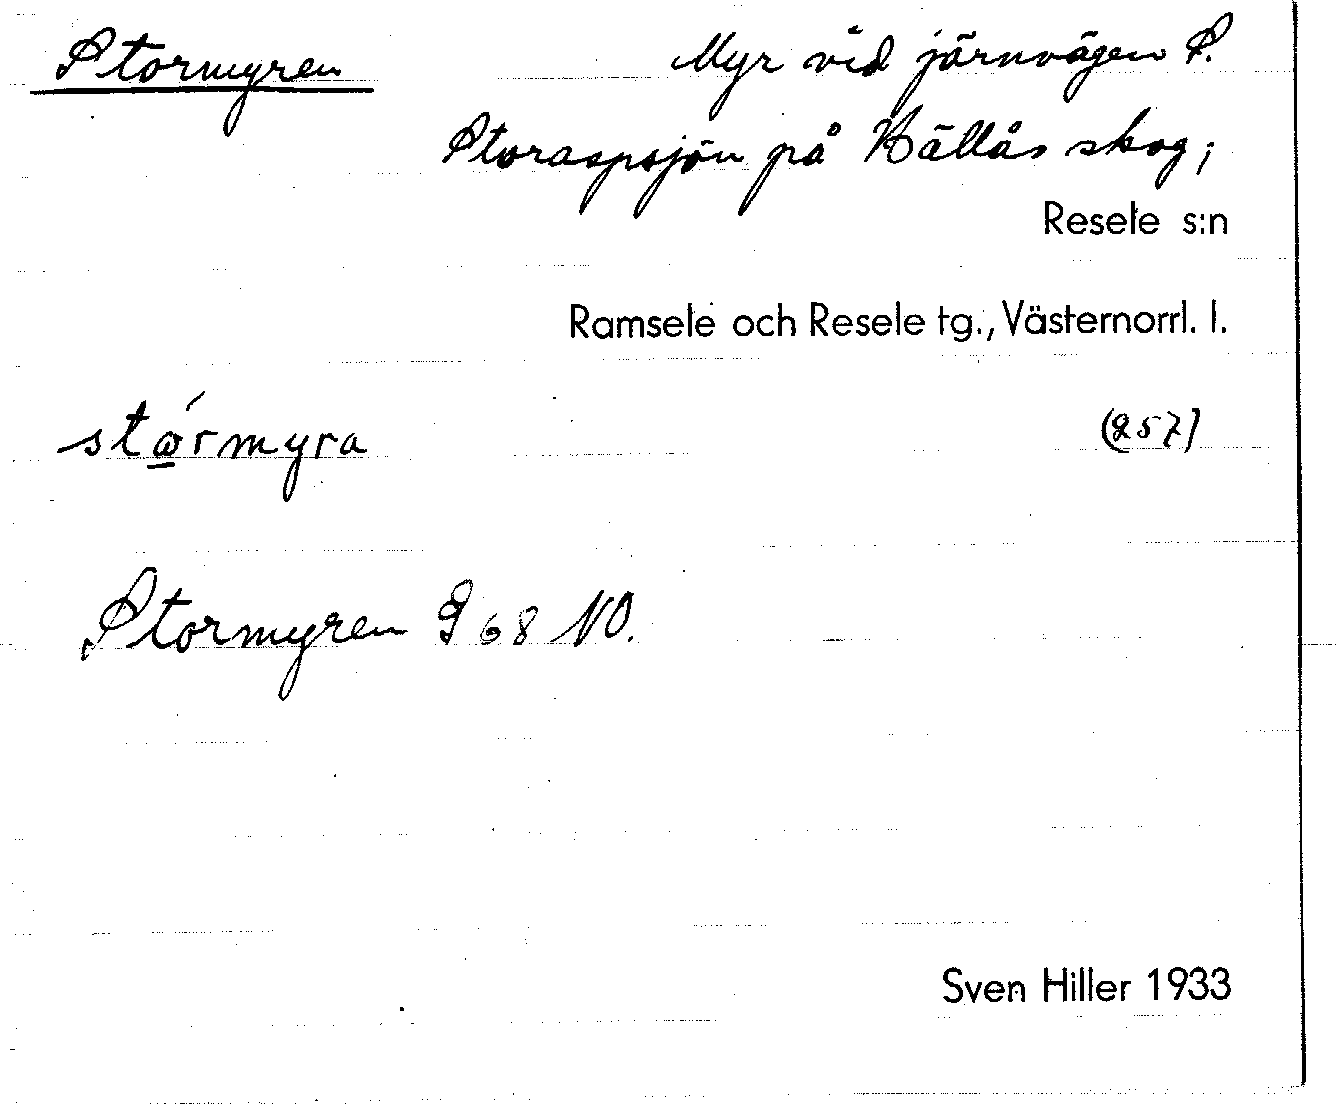 Stormyren Myr vid järnvägen S.
Storaspsjön på Källås skog;
Resele s:n
Ramsele och Resele tg., Västernorrl. l.
(257)
Stormyren G 68 NO.
Sven Hiller 1933